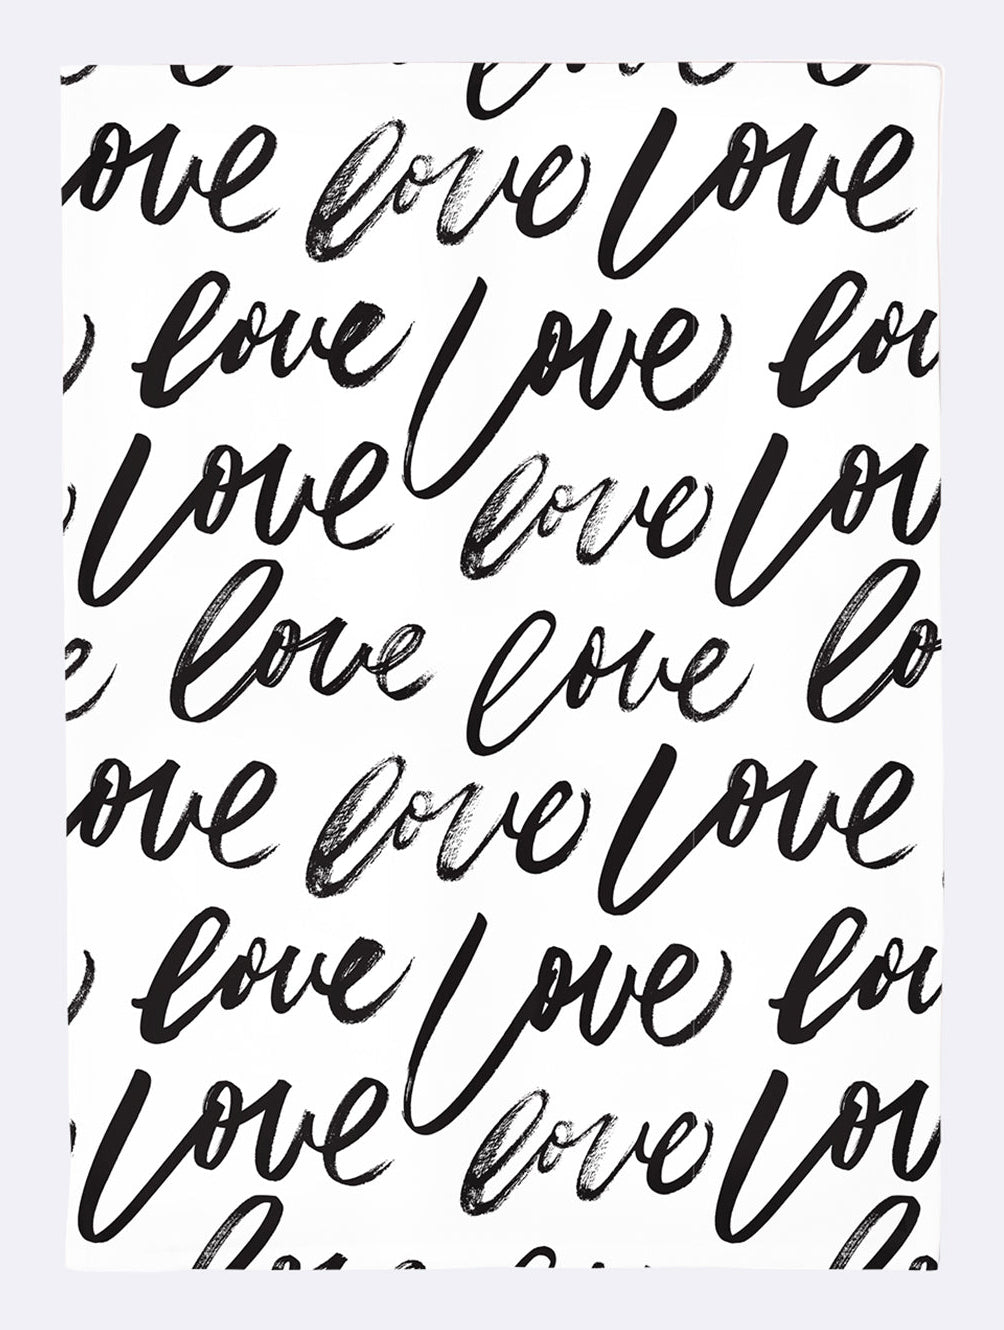 ove love Love
love Love lov
Love love Lov
e love love lo
ove love Love
love Love lov
Love love Lov